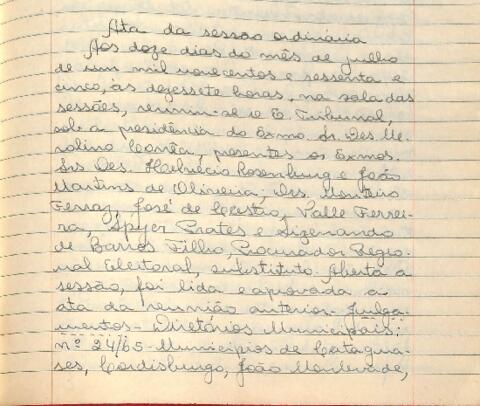 Ata da sessão ordinária
Aos doze dias do mês de julho
de um mil novecentos e sessenta e
cinco, às dezessete horas, na sala das
sessões, reuniu-se o E. Tribunal,
sob a presidência do Exmo. Sr. Des. Me-
rolino Corrêa, presentes os Exmos.
Srs. Des. Rosenburg e João
Martins de Oliveira; Drs. Monteiro
Ferraz, José de Castro, Valle Ferrei-
ra, Spyer Prates e Sizenando
de Barros Filho, Procurador Regio-
nal Eleitoral, substituto. Aberta a
sessão, foi lida e aprovada a
ata da reunião anterior. Julga-
mentos - Diretórios Municipais:
nº 24/65 - Municípios de Catagua-
ses, Cordisburgo, João Monlevade,